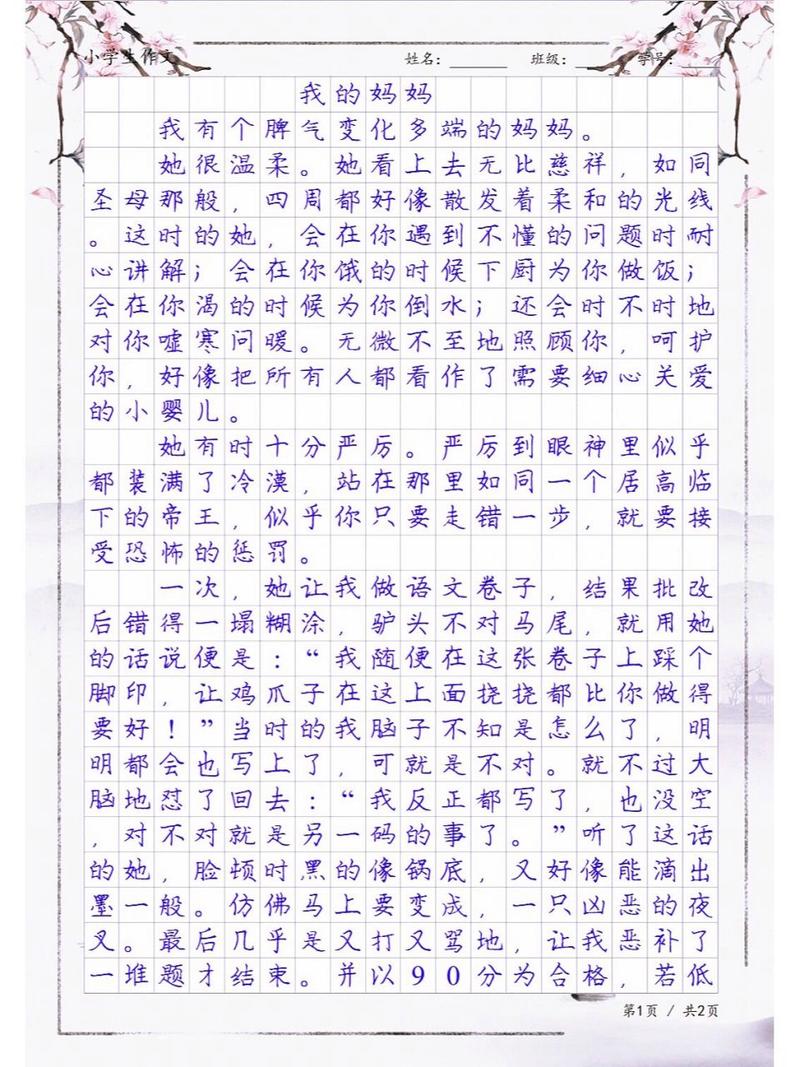 小学生作文
姓名： 班级： 学号：
我的妈妈
我有个脾气变化多端的妈妈。
她很温柔。她看上去无比慈祥，如同
圣母那般，四周都好像散发着柔和的光线
。这时的她，会在你遇到不懂的问题时耐
心讲解；会在你饿的时候下厨为你做饭；
会在你渴的时候为你倒水；还会时不时地
对你嘘寒问暖。无微不至地照顾你，呵护
你，好像把所有人都看作了需要细心关爱
的小婴儿。
她有时十分严厉。严厉到眼神里似乎
都装满了冷漠，站在那里如同一个居高临
下的帝王，似乎你只要走错一步，就要接
受恐怖的惩罚。
一次，她让我做语文卷子，结果批改
后错得一塌糊涂，驴头不对马尾，就用她
的话说便是：“我随便在这张卷子上踩个
脚印，让鸡爪子在这上面挠挠都比你做得
要好！”当时的我脑子不知是怎么了，明
明都会也写上了，可就是不对。就不过大
脑地怼了回去：“我反正都写了，也没空
，对不对就是另一码的事了。”听了这话
的她，脸顿时黑的像锅底，又好像能滴出
墨一般。仿佛马上要变成，一只凶恶的夜
叉。最后几乎是又打又骂地，让我恶补了
一堆题才结束。并以90分为合格，若低
第1页 / 共2页